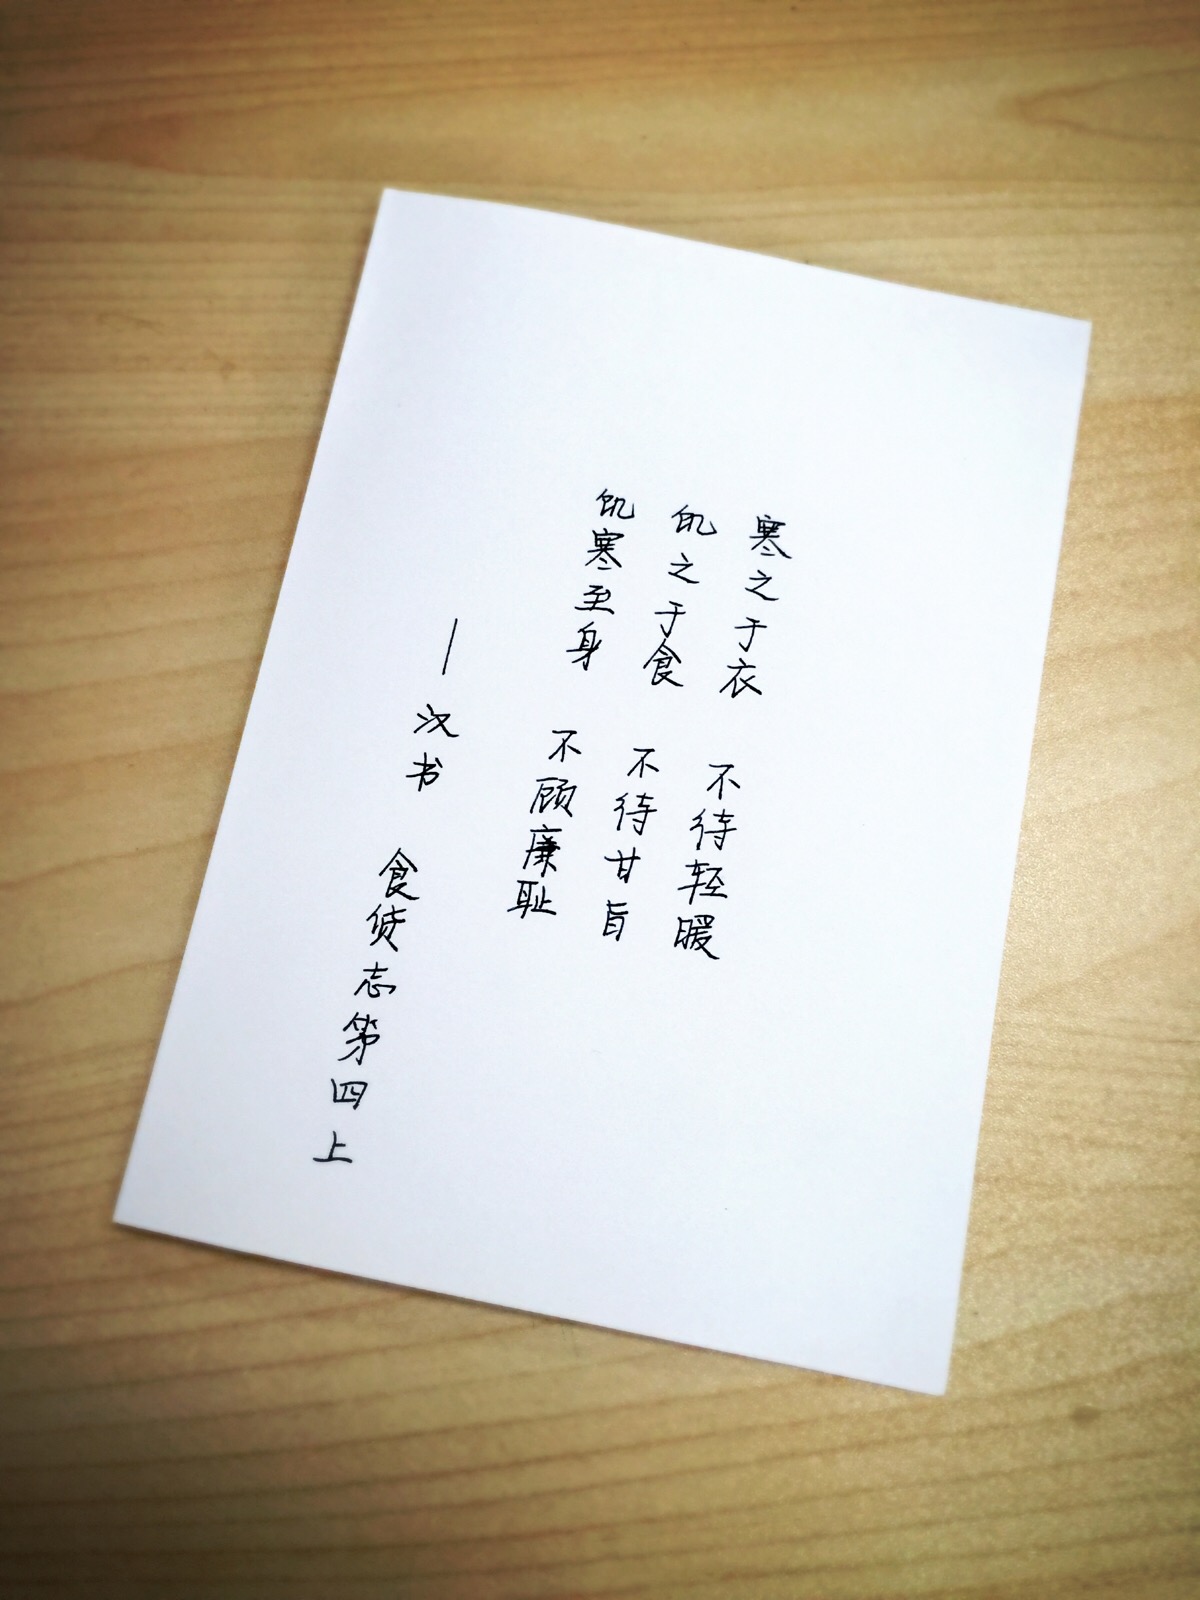 寒之于衣 不待轻暖
饥之于食 不待甘旨
饥寒至身 不顾廉耻
—汉书 食货志第四上